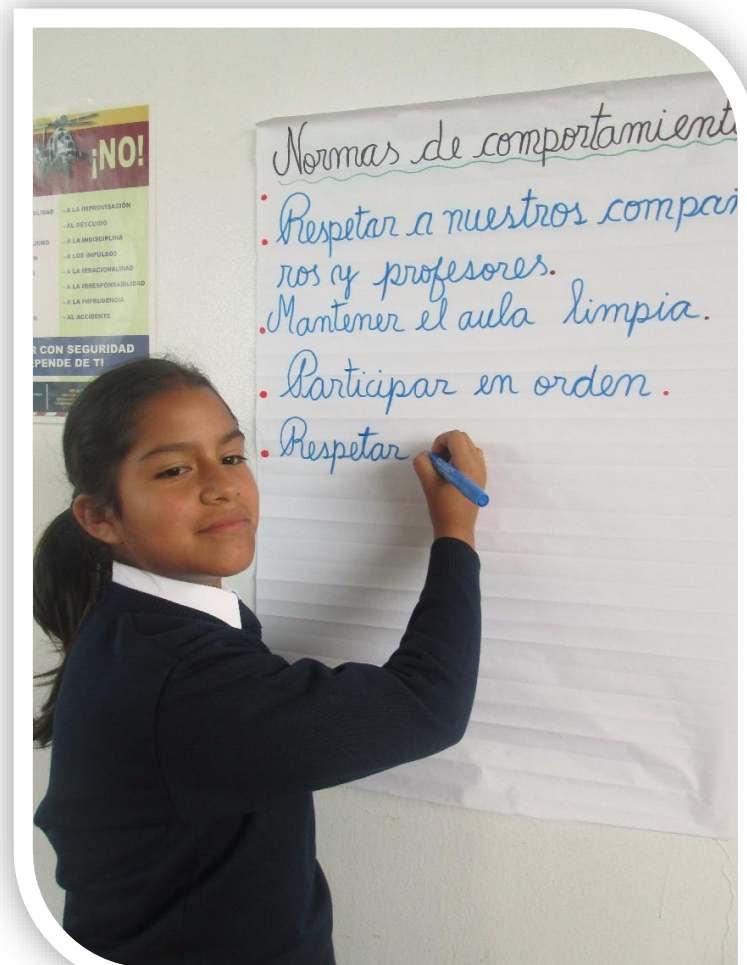 ¡NO!
- A LA IMPROVISACIÓN
- AL DESCUIDO
- A LA INDISCIPLINA
- A LOS IMPULSOS
- A LA IRRACIONALIDAD
- A LA IRRESPONSABILIDAD
- A LA IMPRUDENCIA
- AL ACCIDENTE
CON SEGURIDAD
DE TI
Normas de
Respetar a nuestros
ros y profesores.
Mantener el aula limpia.
Participar en orden.
Respetar